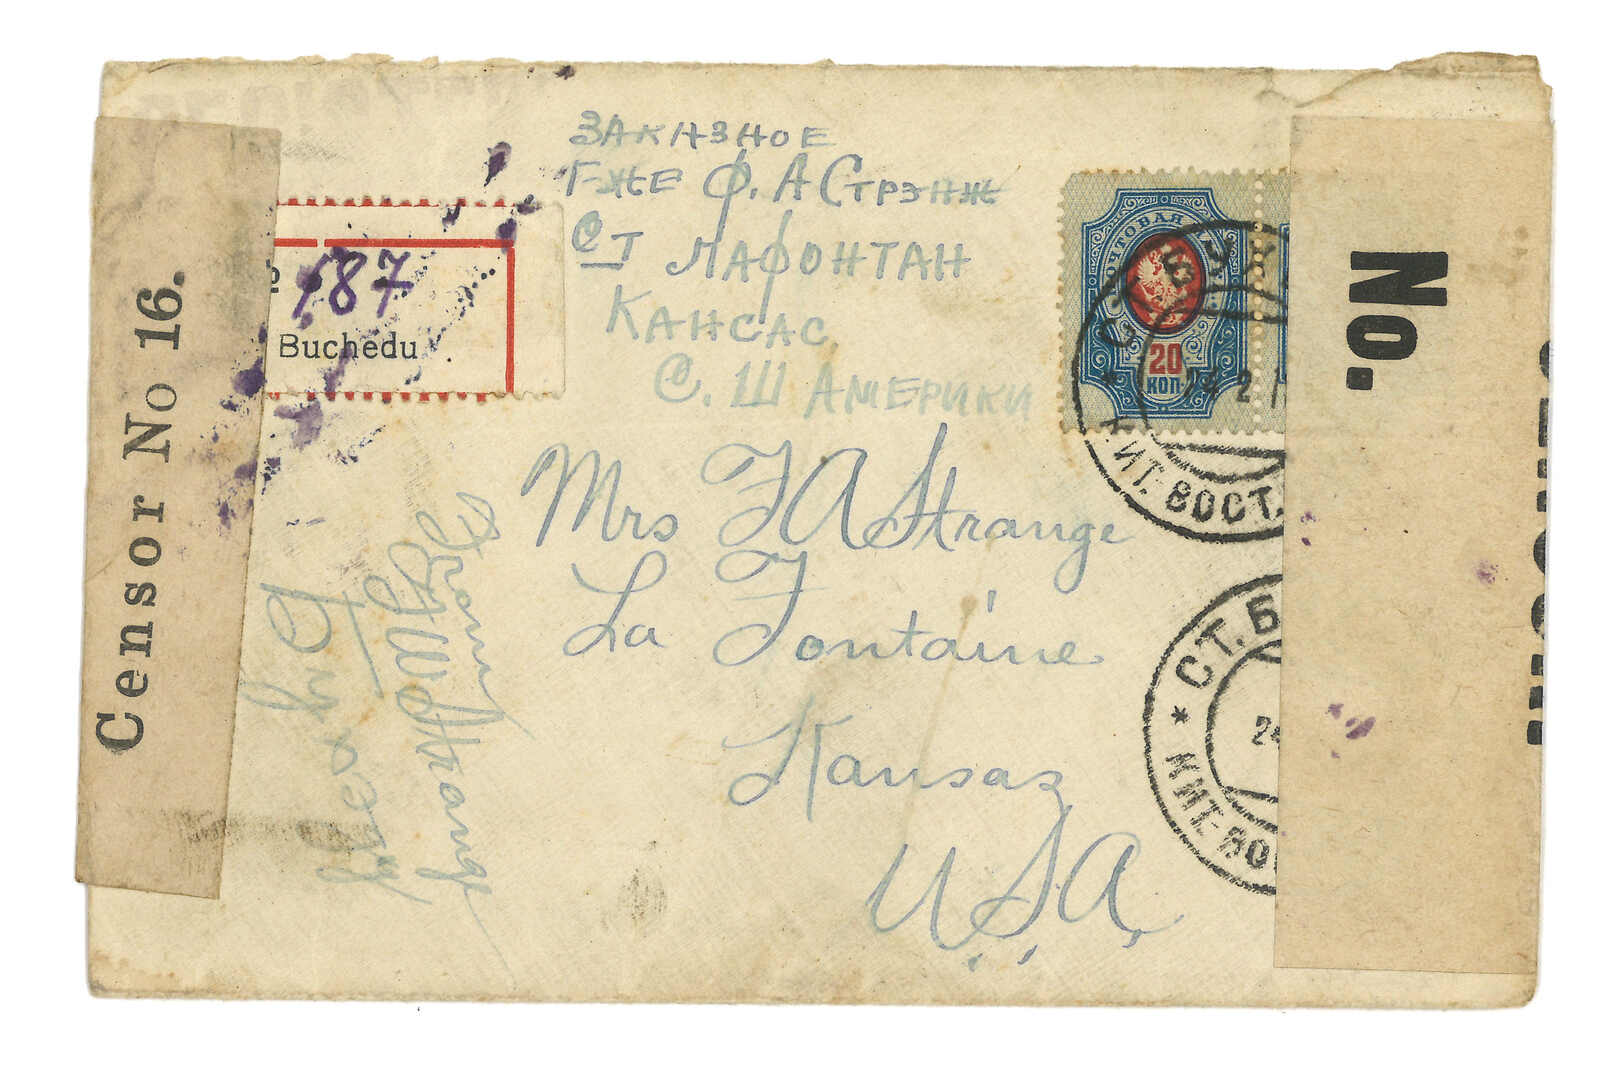 ЗАКАЗНОЕ
Г-ЖЕ Ф. А СТРЭНЖ
СТ ЛАФОНТАН
КАНСАС
С. Ш АМЕРИКИ
187
Buchedu
Censor No 16.
ПОЧТОВАЯ
20
КОП.
2
КИТ. ВОСТ.
No.
Mrs F A Strange
La Fontaine
Kansas
U.S.A.
From
Strange
СТ. Б
24
* КИТ.-ВО